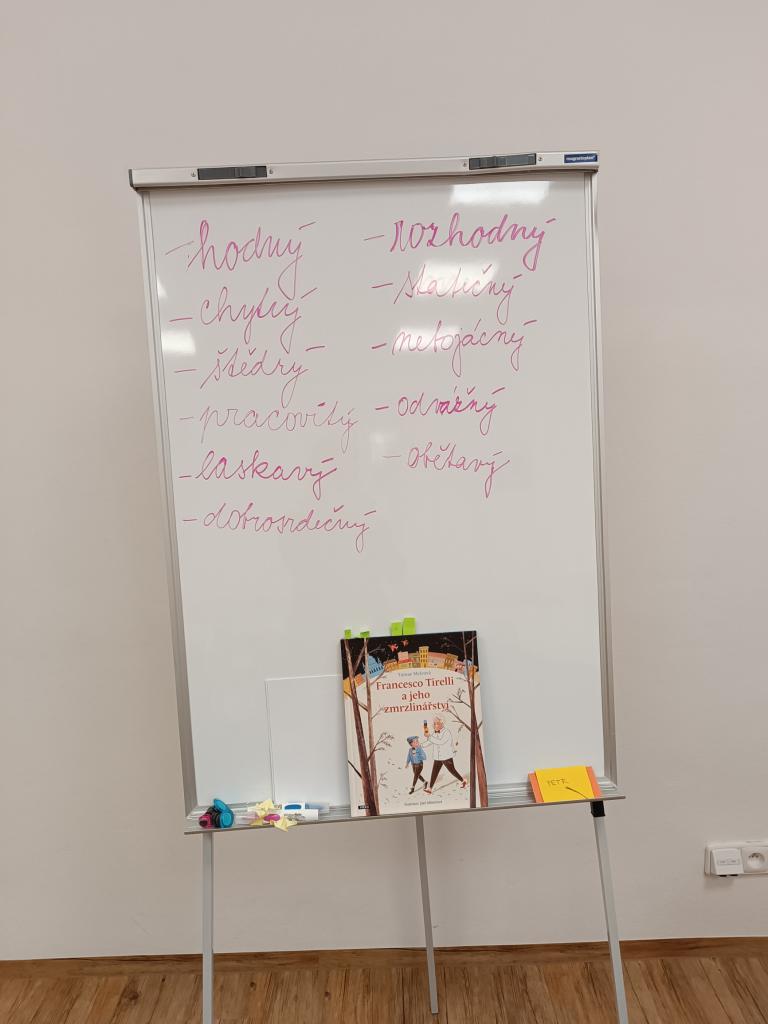 magnetoplan
- hodný
- chytrý
- štědrý
- pracovitý
- laskavý
- dobrosrdečný
- rozhodný
- statečný
- nebojácný
- odvážný
- obětavý
Tamar Meirová
Francesco Tirelli
a jeho
zmrzlinářství
PETR